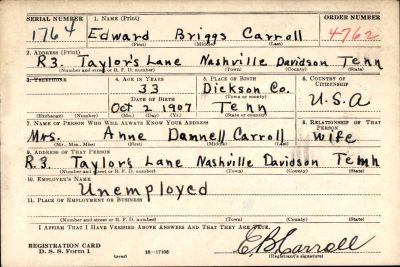 SERIAL NUMBER 1. NAME (Print) ORDER NUMBER
1764 Edward Briggs Carroll 4762
(First) (Middle) (Last)
2. ADDRESS (Print)
R3. Taylor's Lane Nashville Davidson Tenn
(Number and street or R. F. D. number) (Town) (County) (State)
3. TELEPHONE 4. AGE IN YEARS 5. PLACE OF BIRTH 6. COUNTRY OF CITIZENSHIP
33 Dickson Co.
DATE OF BIRTH (Town or county) U.S.A
Oct 2 1907 Tenn
(Exchange) (Number) (Mo.) (Day) (Yr.) (State or country)
7. NAME OF PERSON WHO WILL ALWAYS KNOW YOUR ADDRESS 8. RELATIONSHIP OF THAT PERSON
Mrs. Anne Dannell Carroll Wife
(Mr., Mrs., Miss) (First) (Middle) (Last)
9. ADDRESS OF THAT PERSON
R.3. Taylor's Lane Nashville Davidson Tenn
(Number and street or R. F. D. number) (Town) (County) (State)
10. EMPLOYER'S NAME
Unemployed
11. PLACE OF EMPLOYMENT OR BUSINESS
(Number and street or R. F. D. number) (Town) (County) (State)
I AFFIRM THAT I HAVE VERIFIED ABOVE ANSWERS AND THAT THEY ARE TRUE.
REGISTRATION CARD
D. S. S. Form 1 (over) 16—17105 E B Carroll
(Registrant's signature)